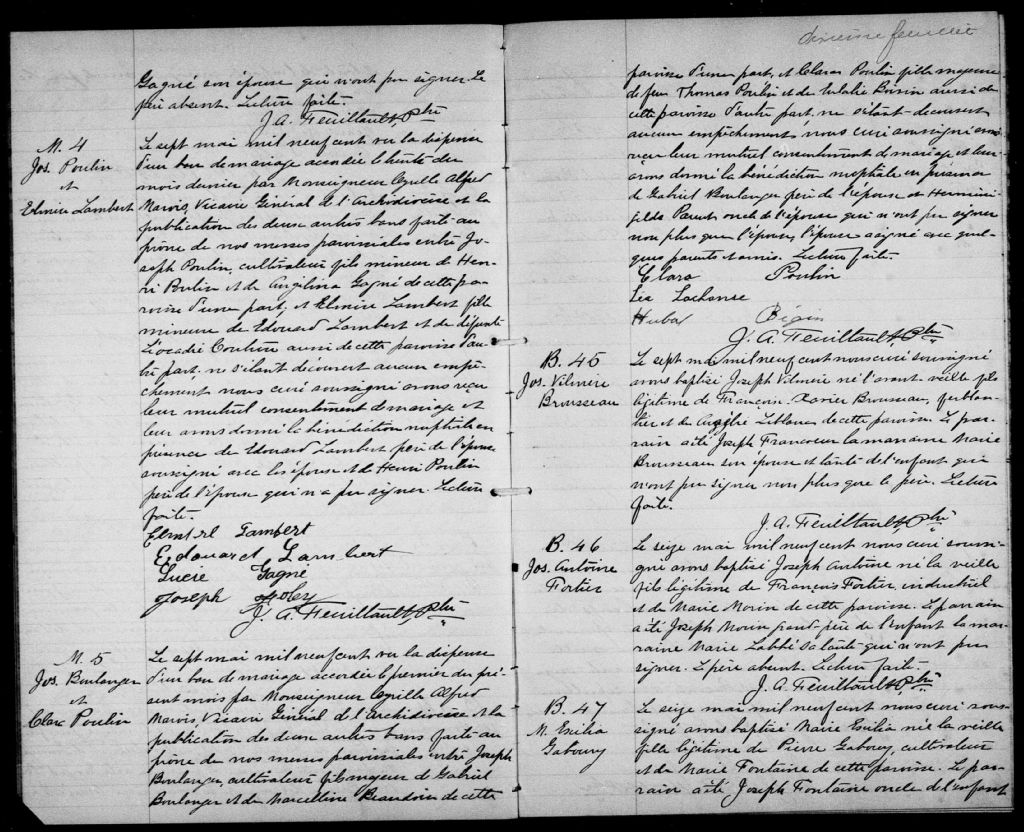 Gagné son épouse qui n'ont pu signer. Le
père absent. Lecture faite.
J. A. Feuiltault Ptre
M. 4
Jos. Poulin
et
Elmire Lambert
Le sept mai mil neuf cent vu la dispense
d'un ban de mariage accordée le trente du
mois dernier par Monseigneur Cyrille Alfred
Marois, Vicaire Général de l'Archidiocèse et la
publication des deux autres bans faite au
prône de nos messes paroissiales entre Jo-
seph Poulin, cultivateur fils mineur de Hen-
ri Poulin et de Angelina Gagné de cette pa-
roisse d'une part, et Elmire Lambert fille
mineure de Edouard Lambert et de défunte
Léocadie Couture aussi de cette paroisse d'au-
tre part, ne s'étant découvert aucun empê-
chement nous curé soussigné avons reçu
leur mutuel consentement de mariage et
leur avons donné la bénédiction nuptiale en
présence de Edouard Lambert père de l'épouse
soussigné avec les époux et de Henri Poulin
père de l'époux qui n'a pu signer. Lecture
faite.
Lambert
Edouard Lambert
Gagné
Joseph
J. A. Feuiltault Ptre
M. 5
Jos. Boulanger
et
Clara Poulin
Le sept mai mil neuf cent vu la dispense
d'un ban de mariage accordée le premier du pré-
sent mois par Monseigneur Cyrille Alfred
Marois, Vicaire Général de l'Archidiocèse et la
publication des deux autres bans faite au
prône de nos messes paroissiales entre Joseph
Boulanger, cultivateur fils majeur de Gabriel
Boulanger et de Marcelline Beaudoin de cette
feuillet
paroisse d'une part, et Clara Poulin fille majeure
de feu Thomas Poulin et de Eulalie Boisin aussi de
cette paroisse d'autre part, ne s'étant découvert
aucun empêchement nous curé soussigné avons
reçu leur mutuel consentement de mariage et leur
avons donné la bénédiction nuptiale en présence
de Gabriel Boulanger père de l'époux et Herméné-
gilde Parent oncle de l'épouse qui n'ont pu signer
non plus que l'époux, l'épouse a signé avec quel-
ques parents et amis. Lecture faite.
Clara Poulin
Léa Lachanse
Bégin
J. A. Feuiltault Ptre
B. 45
Jos. Vilmère
Brousseau
Le sept mai mil neuf cent nous curé soussigné
avons baptisé Joseph Vilmère né l'avant-veille fils
légitime de François-Xavier Brousseau, ferblan-
tier et de Angèle Leblanc de cette paroisse. Le par-
rain a été Joseph Francoeur la marraine Marie
Brousseau son épouse et tante de l'enfant qui
n'ont pu signer non plus que le père. Lecture
faite.
J. A. Feuiltault Ptre
B. 46
Jos. Antoine
Fortier
Le seize mai mil neuf cent nous curé soussi-
gné avons baptisé Joseph Antoine né la veille
fils légitime de François Fortier, industriel
et de Marie Morin de cette paroisse. Le parrain
a été Joseph Morin grand-père de l'enfant la mar-
raine Marie Labbé sa tante qui n'ont pu
signer. Le père absent. Lecture faite.
J. A. Feuiltault Ptre
B. 47
M. Exilia
Gaboury
Le seize mai mil neuf cent nous curé sous-
signé avons baptisé Marie Exilia née la veille
fille légitime de Pierre Gaboury, cultivateur
et de Marie Fontaine de cette paroisse. Le par-
rain a été Joseph Fontaine oncle de l'enfant